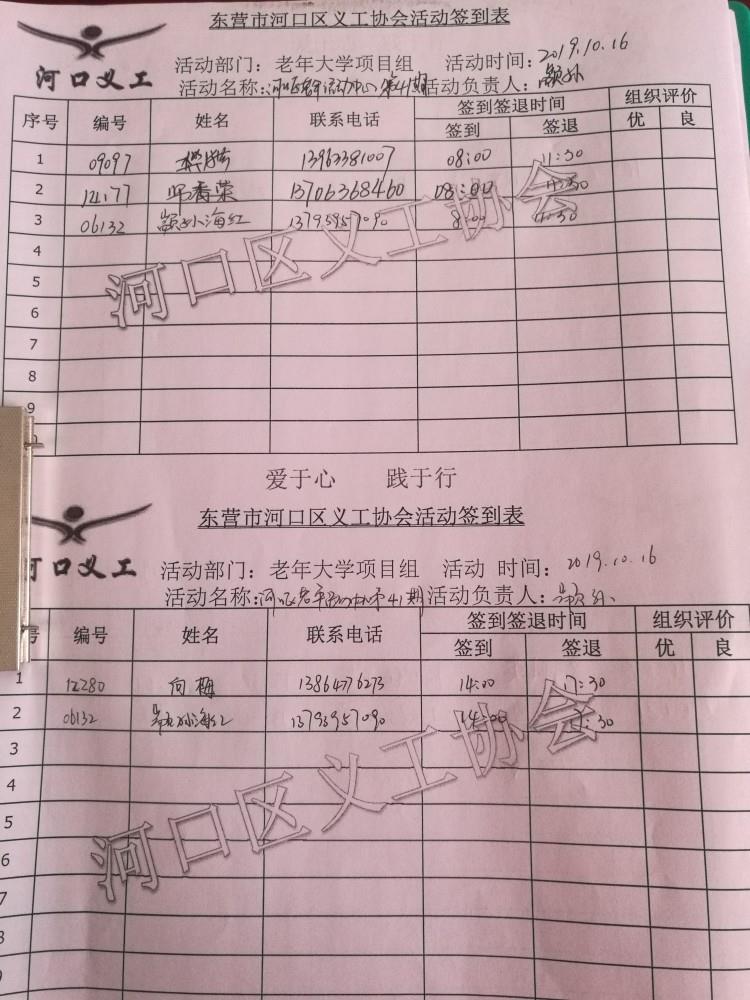 东营市河口区义工协会活动签到表
河口义工
活动部门：老年大学项目组 活动时间：2019.10.16
活动名称： 第41期 活动负责人：
序号 编号 姓名 联系电话 签到签退时间 组织评价
签到 签退 优 良
1 09097 13963381007 08:00 11:30
2 12177 香荣 13706368460 08:00 11:30
3 06132 海红 13793957090 8:00 11:30
4
5
6
7
8
9
河口区义工协会
爱于心 践于行
东营市河口区义工协会活动签到表
河口义工
活动部门：老年大学项目组 活动 时间：2019.10.16
活动名称： 41期 活动负责人：
号 编号 姓名 联系电话 签到签退时间 组织评价
签到 签退 优 良
1 12280 向梅 13864776273 14:00 17:30
2 06132 海红 13793957090 14:00 17:30
3
4
5
6
7
8
河口区义工协会